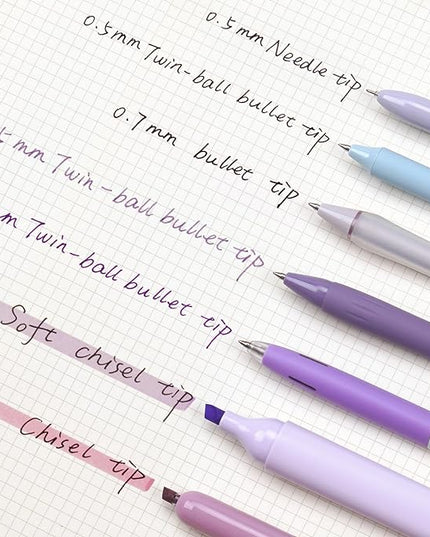 0.5mm Needle tip
0.5mm Twin-ball bullet tip
0.7mm bullet tip
mm Twin-ball bullet tip
m Twin-ball bullet tip
Soft chisel tip
Chisel tip